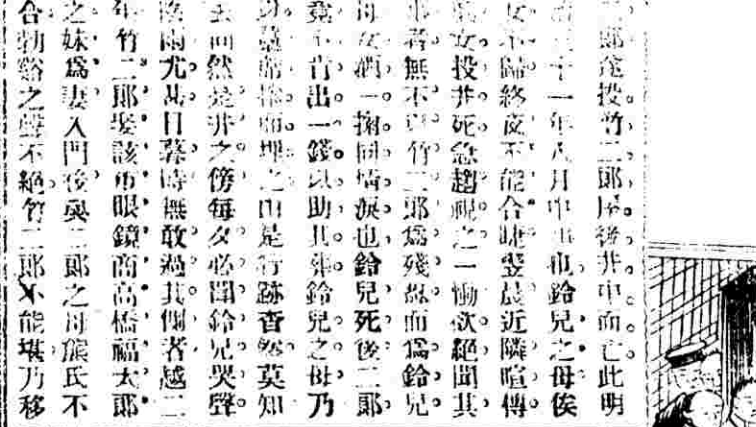 郎遂投竹二郎屋後井中而亡。此明
十一年八月中事也。鈴兒之母俟
女不歸。終夜不能合睫。翌晨近隣喧傳。
女投井死。急趨視之。一慟欲絕。聞其
事者。無不竹二郎爲殘忍。而爲鈴兒
母女灑一掬同情淚也。鈴兒死後。二郎
竟不肯出一錢以助其葬。鈴兒之母乃
以藁席捲而埋之。由是行跡杳然。莫知
去向。然是井之傍。每夕必聞鈴兒哭聲。
陰雨尤甚。日暮時無敢過其側者。越二
年。竹二郎娶該市眼鏡商高橋福太郎
之妹爲妻。入門後與二郎之母熊氏不
合。勃谿之聲不絕。竹二郎不能堪。乃移